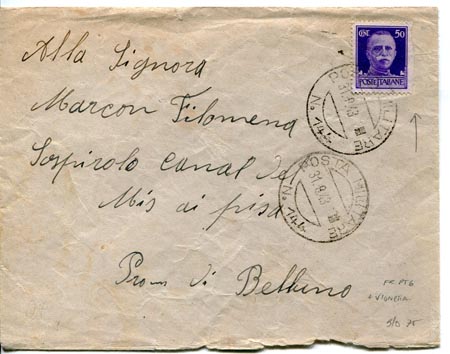 CENT. 50
POSTE ITALIANE
POSTA MILITARE
N. 144
Alla Signora
Marcon Filomena
Sospirolo Canal del
Mis ai pisa
POSTA MILITARE
31.8.43
N. 144
Prov. di Belluno
FR. PTG
+ VIGNETTA
5/0 75